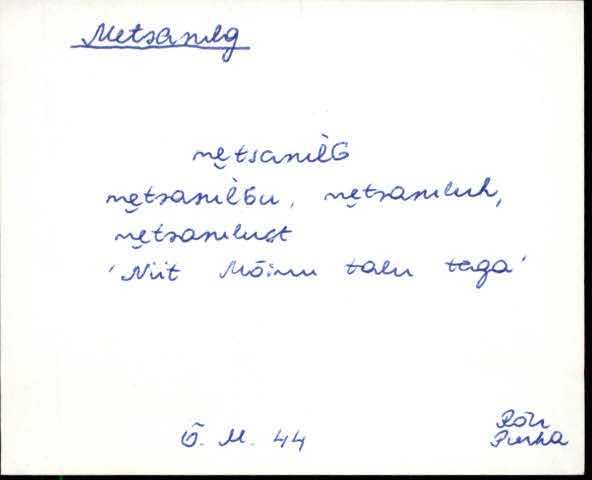 Metsanilg
mẹtsanìlG
mẹtsanìlGu, mẹtsaniluh,
mẹtsanilust
'Niit Mõinu talu taga'
Õ. M. 44
Rõu
Purka